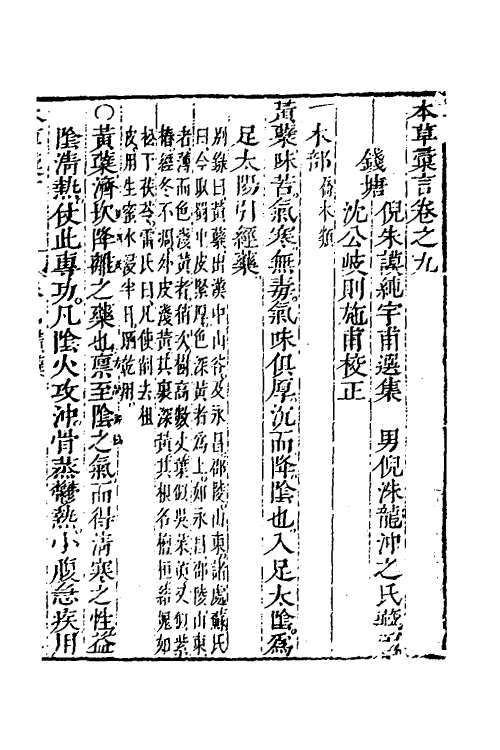 本草彙言卷之九
錢塘
倪朱謨純宇甫選集　男倪洙龍沖之氏
沈公岐則施甫校正
木部喬木類
黃蘗味苦氣寒無毒氣味俱厚沉而降陰也入足太陰爲
足太陽引經藥
別錄曰黃蘗出漢中山谷及永昌邵陵山東諸處蘇氏
曰今取蜀中皮緊厚色深黃者爲上如永昌邵陵山東
者薄而色淺黃者稍次樹高數丈葉似吳茱萸又似紫
椿經冬不凋外皮淺黃其裏深黃其根名檀桓結塊如
松下茯苓雷氏曰凡使削去粗
皮用生蜜水浸半日晒乾用
○黃蘗濟坎降離之藥也稟至陰之氣而得清寒之性益
陰清熱使此專功凡陰火攻沖骨蒸鬱熱小腹急疾用